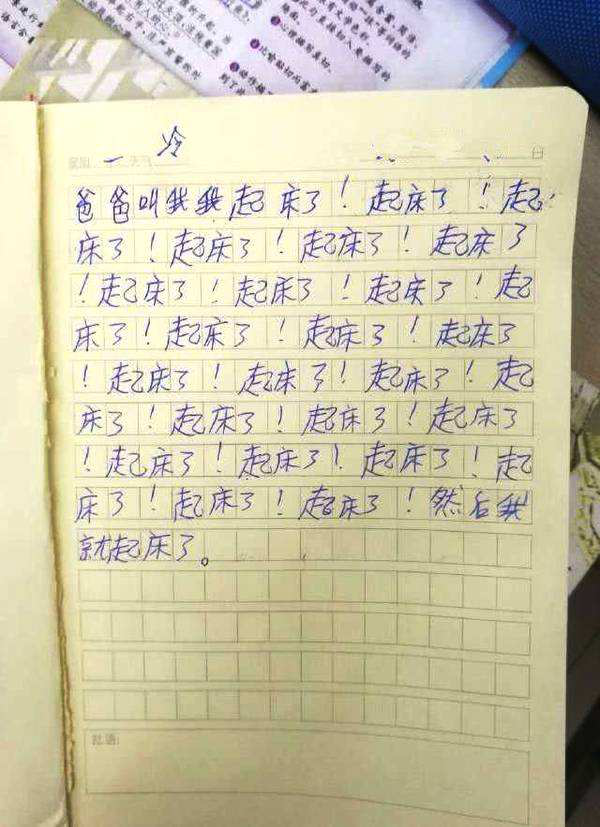 星期一 天气冷 日
爸爸叫我我起床了！起床了！起
床了！起床了！起床了！起床了
！起床了！起床了！起床了！起
床了！起床了！起床了！起床了
！起床了！起床了！起床了！起
床了！起床了！起床了！起床了
！起床了！起床了！起床了！起
床了！起床了！起床了！然后我
就起床了。
批语: